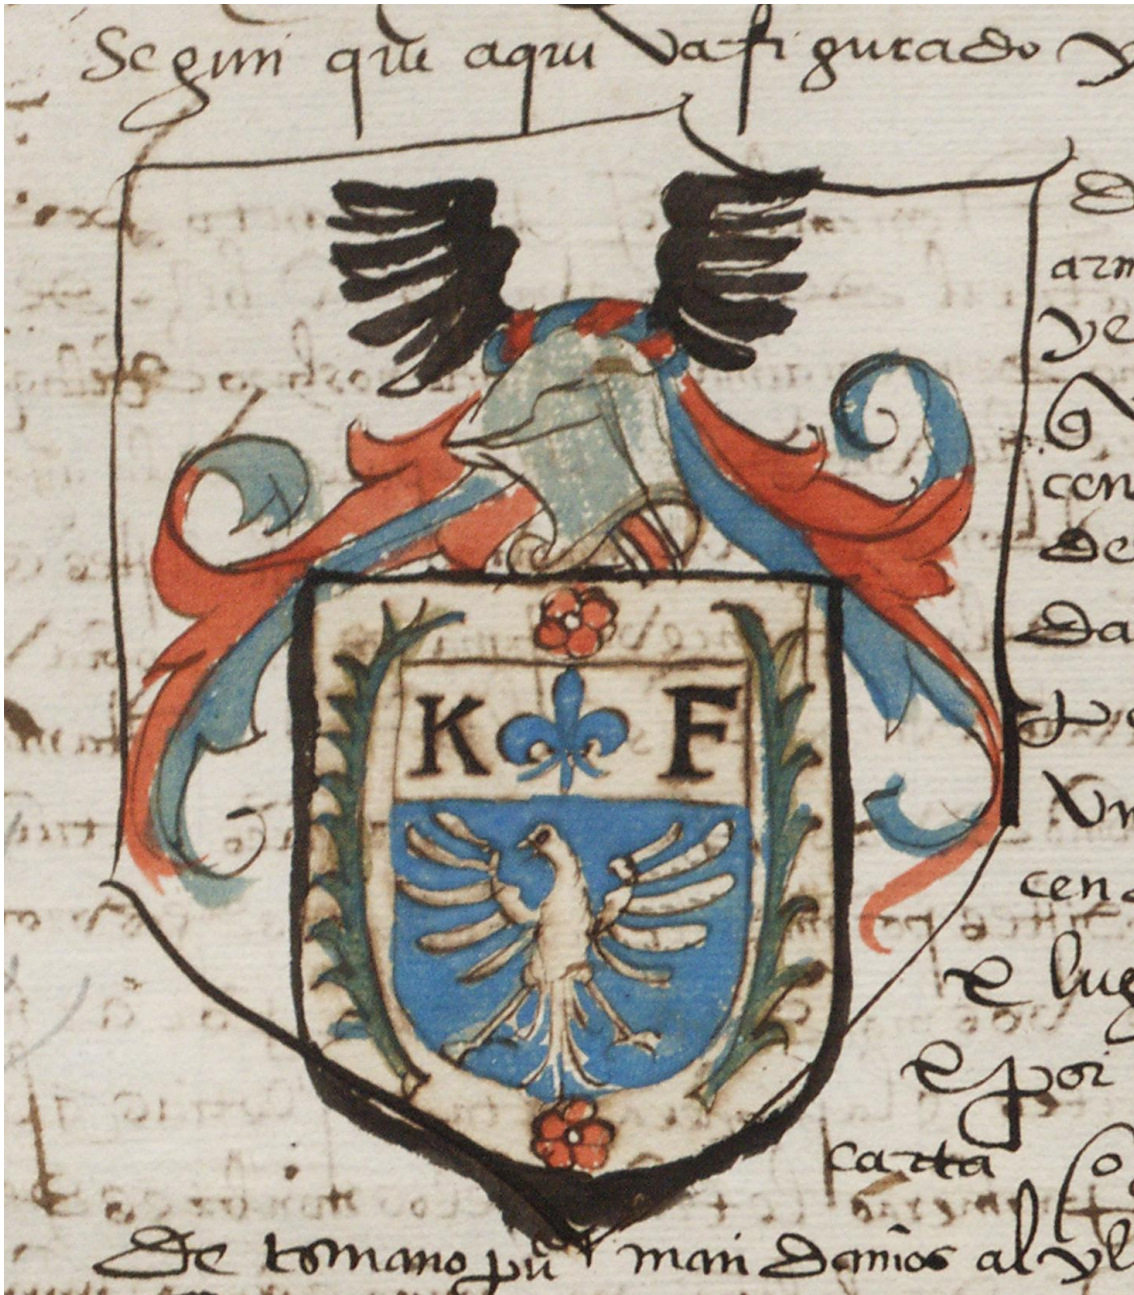 Segun que aqui va figurado y
K F
arm
ye
con
de
da
Un
cen
e lug
e por
carta
De romano man damos al